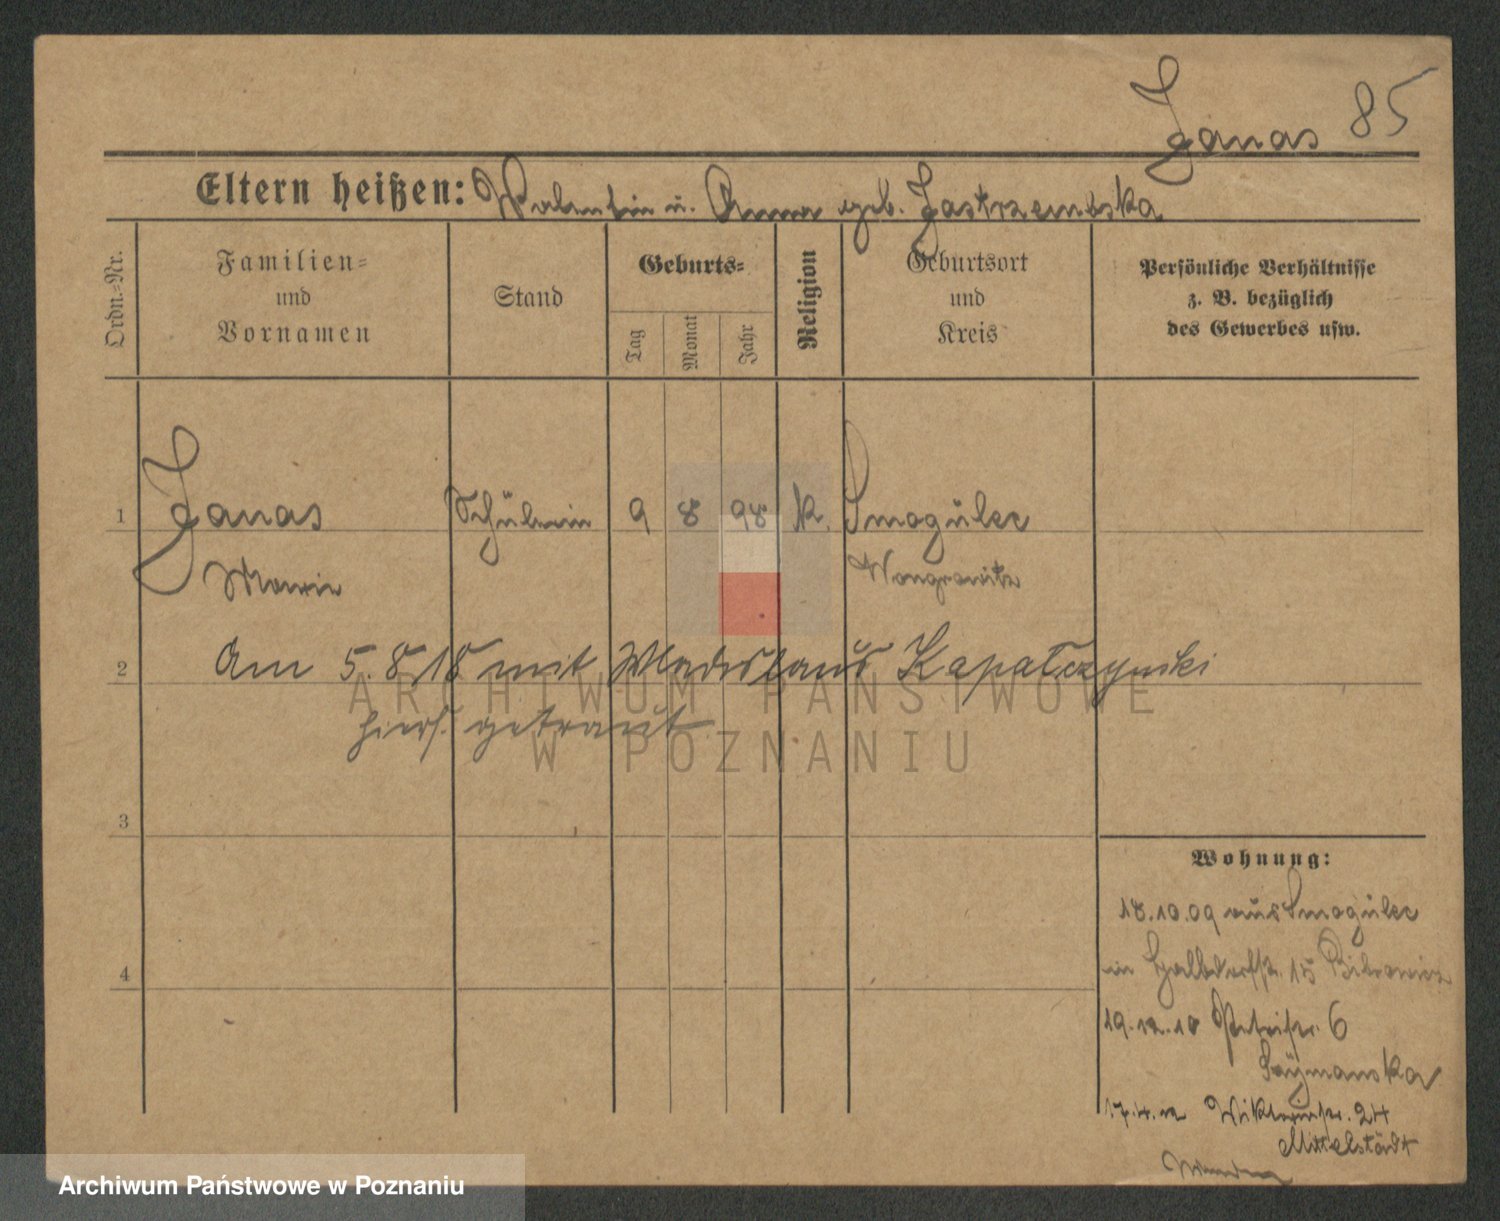 Janas 85
Eltern heißen: Valentin u. Anna geb. Jastrzembska
Ordn.=Nr.
Familien=
und
Vornamen
Stand
Geburts=
Tag
Monat
Jahr
Religion
Geburtsort
und
Kreis
Persönliche Verhältnisse
z. B. bezüglich
des Gewerbes usw.
1 Janas Schülerin 9 8 98 k. Smogulec
Marie Wongrowitz
2 Am 5.8.18 mit Wladislaus Kapałczynski
hiers. getraut
ARCHIWUM PAŃSTWOWE
W POZNANIU
3
4
Wohnung:
18.10.09 aus Smogulec
in Halbdorfstr. 15
19.12.10 Petristr. 6
Szymanska
17.4.12 Viktoriastr. 24
Mittelstädt
Archiwum Państwowe w Poznaniu